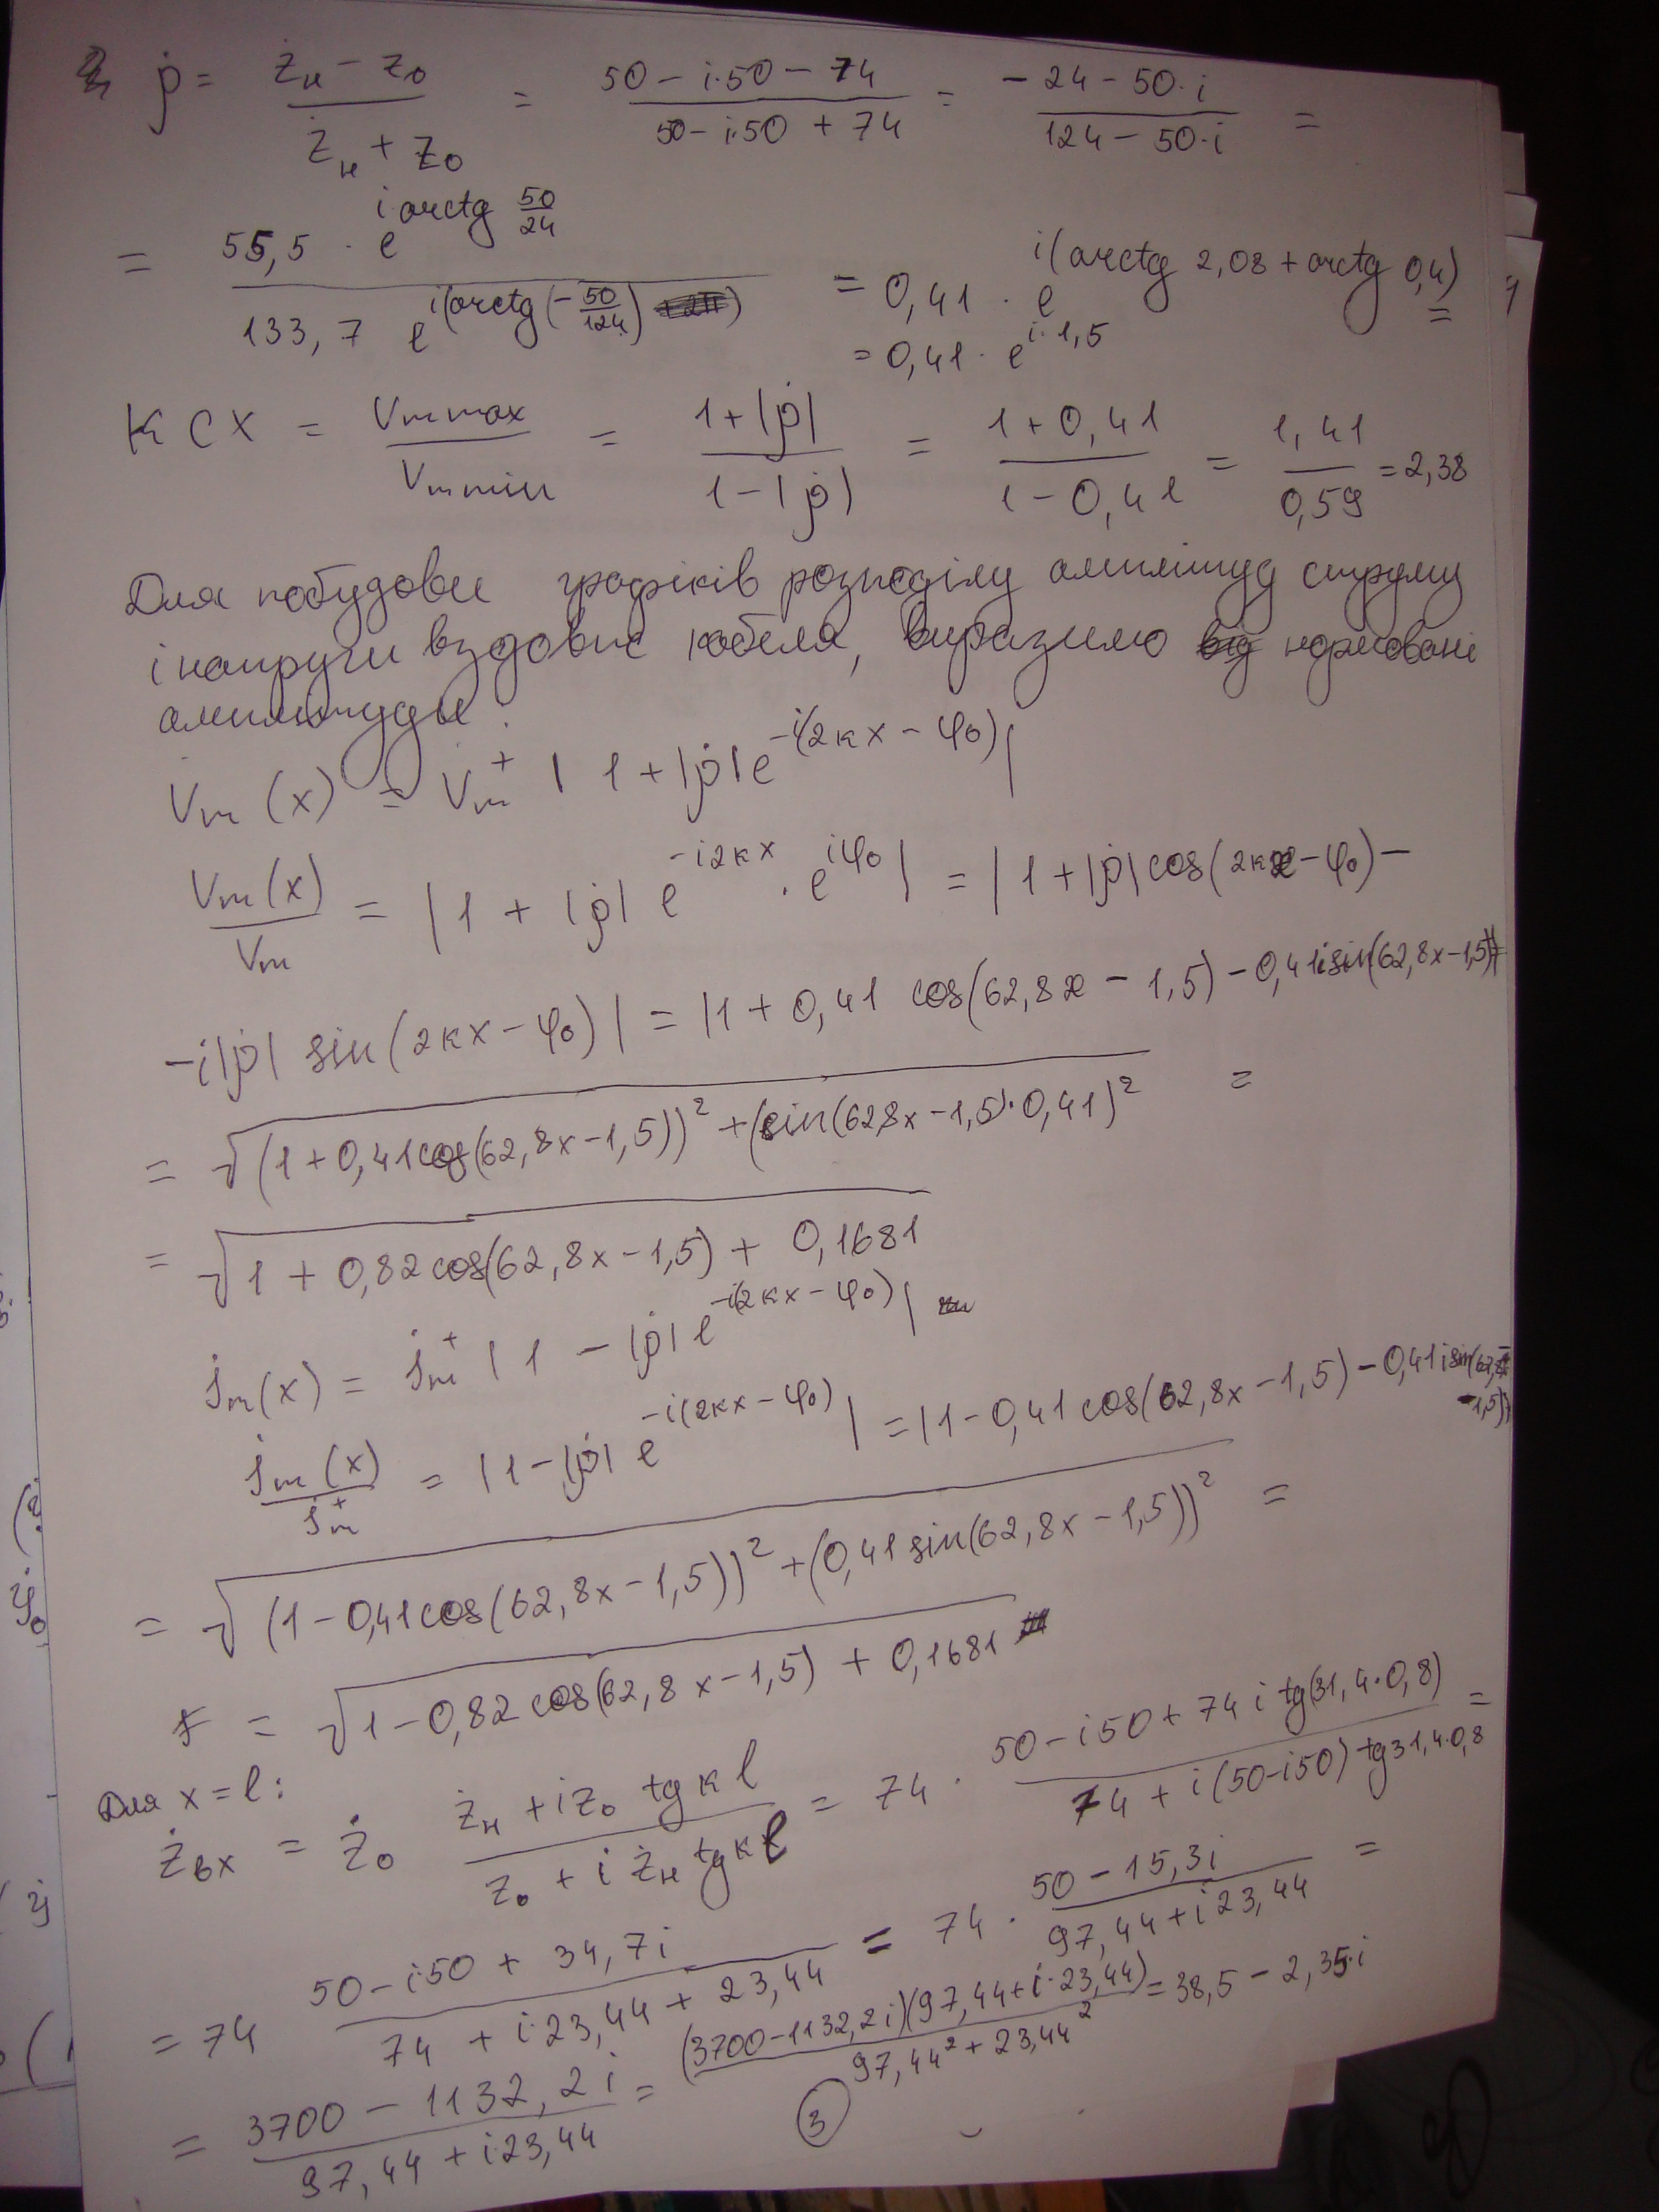 ρ̇ = (Ż_н − Z_0)/(Ż_н + Z_0) = (50 − i·50 − 74)/(50 − i·50 + 74) = (−24 − 50·i)/(124 − 50·i) =
= (55,5 · e^(i arctg 50/24))/(133,7 e^(i(arctg(−50/124)))) = 0,41 · e^(i(arctg 2,08 + arctg 0,4)) =
= 0,41 · e^(i·1,5)
КСХ = V_m max/V_m min = (1+|ρ̇|)/(1−|ρ̇|) = (1+0,41)/(1−0,41) = 1,41/0,59 = 2,38
Для побудови графіків розподілу амплітуд струму
і напруги вздовж кабеля, виразимо нормовані
амплітуди:
V_m(x) = V̇_m^+ | 1 + |ρ̇| e^(−i(2кx − φ_0)) |
V_m(x)/V_m = | 1 + |ρ̇| e^(−i2кx) · e^(iφ_0) | = | 1 + |ρ̇| cos(2кx − φ_0) −
− i|ρ̇| sin(2кx − φ_0) | = |1 + 0,41 cos(62,8x − 1,5) − 0,41i sin(62,8x − 1,5)| =
= √((1 + 0,41cos(62,8x − 1,5))² + (sin(62,8x − 1,5)·0,41)²) =
= √(1 + 0,82 cos(62,8x − 1,5) + 0,1681)
İ_m(x) = İ_m^+ | 1 − |ρ̇| e^(−i(2кx − φ_0)) |
İ_m(x)/İ_m^+ = | 1 − |ρ̇| e^(−i(2кx − φ_0)) | = |1 − 0,41 cos(62,8x − 1,5) − 0,41 i sin(62,8x
− 1,5)|
= √((1 − 0,41cos(62,8x − 1,5))² + (0,41 sin(62,8x − 1,5))²) =
= √(1 − 0,82 cos(62,8x − 1,5) + 0,1681)
Для x = l:
Ż_вх = Ż_0 (Ż_н + iZ_0 tg кl)/(Z_0 + i Ż_н tg кl) = 74 · (50 − i50 + 74 i tg(31,4·0,8))/(74 + i(50−i50) tg31,4·0,8) =
= 74 (50 − i·50 + 34,7i)/(74 + i·23,44 + 23,44) = 74 · (50 − 15,3i)/(97,44 + i23,44) =
= (3700 − 1132,2i)/(97,44 + i·23,44) = ((3700 − 1132,2i)(97,44 + i·23,44))/(97,44² + 23,44²) = 38,5 − 2,35·i
3